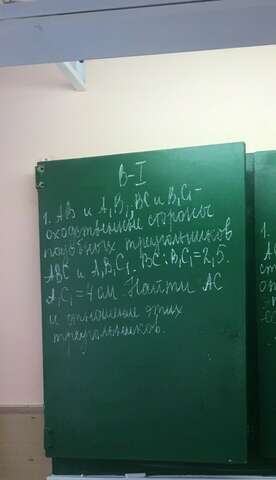 В-I
1. АВ и А₁В₁, ВС и В₁С₁ -
сходственные стороны
подобных треугольников
АВС и А₁В₁С₁. ВС : В₁С₁ = 2,5.
А₁С₁ = 4 см. Найти АС
и отношение этих
треугольников.
1.